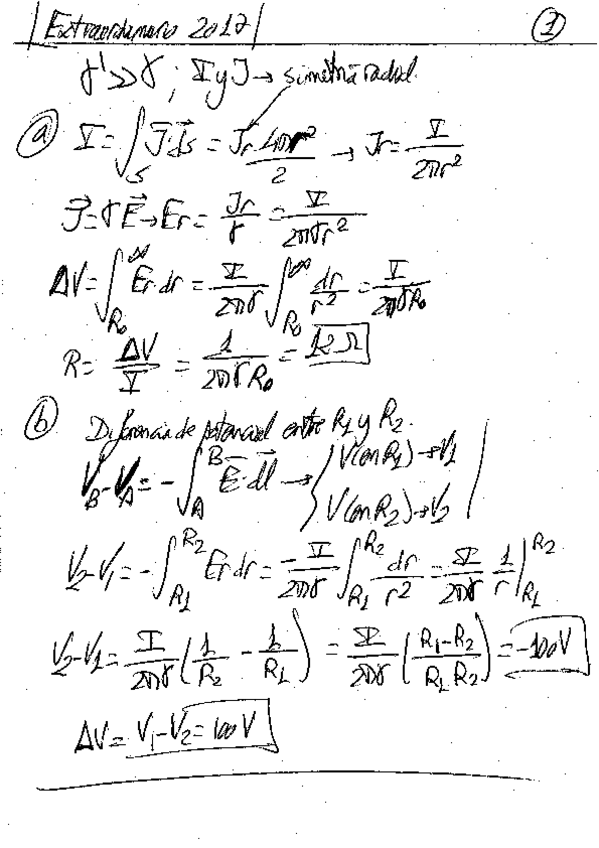 Extraordinario 2017 1
γ' >> γ ; I y J → simetría radial.
a) I = ∫_S J⃗ ds⃗ = Jr 4πr²/2 → Jr = I/(2πr²)
J⃗ = γE⃗ → Er = Jr/γ = I/(2πγr²)
ΔV = ∫_{R₀}^{∞} Er dr = I/(2πγ) ∫_{R₀}^{∞} dr/r² = I/(2πγR₀)
R = ΔV/I = 1/(2πγR₀) = 12 Ω
b) Diferencia de potencial entre R₁ y R₂.
V_B - V_A = - ∫_A^B E⃗·dl⃗ → { V(en R₁) → V₁
V(en R₂) → V₂
V₂ - V₁ = - ∫_{R₁}^{R₂} Er dr = -I/(2πγ) ∫_{R₁}^{R₂} dr/r² = I/(2πγ) 1/r |_{R₁}^{R₂}
V₂ - V₁ = I/(2πγ) (1/R₂ - 1/R₁) = I/(2πγ) ((R₁-R₂)/(R₁R₂)) = -100V
ΔV = V₁ - V₂ = 100V